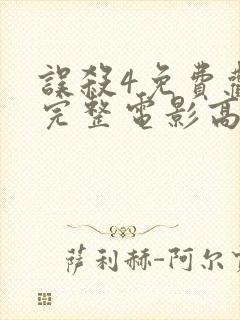 誤殺4免費
完整電影高
萨利赫-阿尔